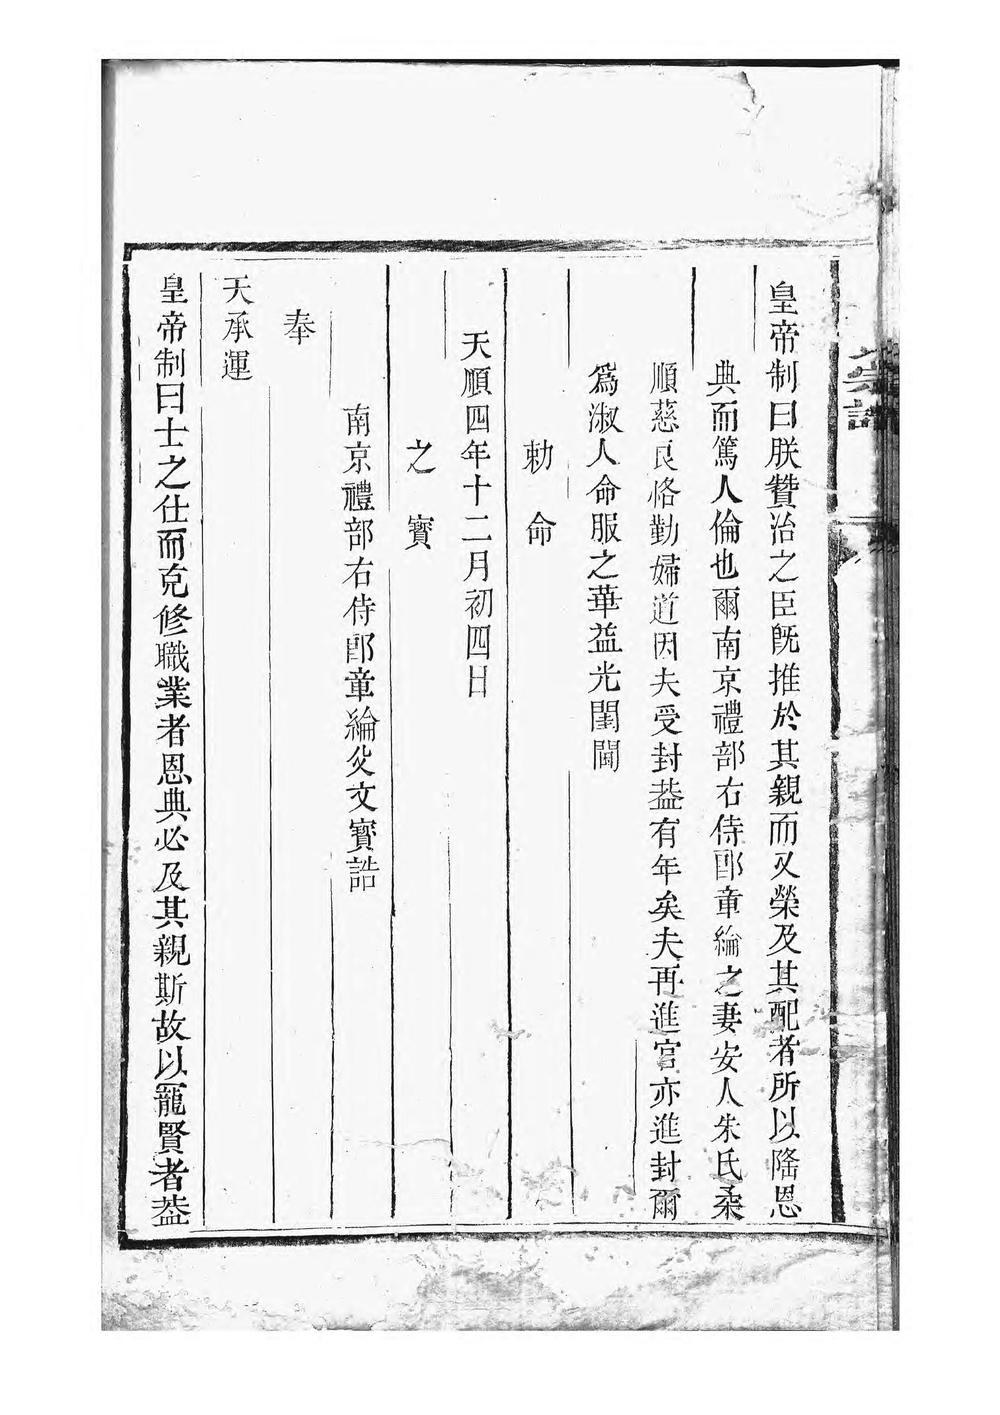 宗譜
皇帝制曰朕贊治之臣旣推於其親而又榮及其配者所以隆恩
典而篤人倫也爾南京禮部右侍郎章綸之妻安人朱氏柔
順慈良恪勤婦道因夫受封葢有年矣夫再進官亦進封爾
爲淑人命服之華益光閨閫
勅命
天順四年十二月初四日
之寳
南京禮部右侍郎章綸父文寳誥
奉
天承運
皇帝制曰士之仕而克修職業者恩典必及其親斯故以寵賢者葢